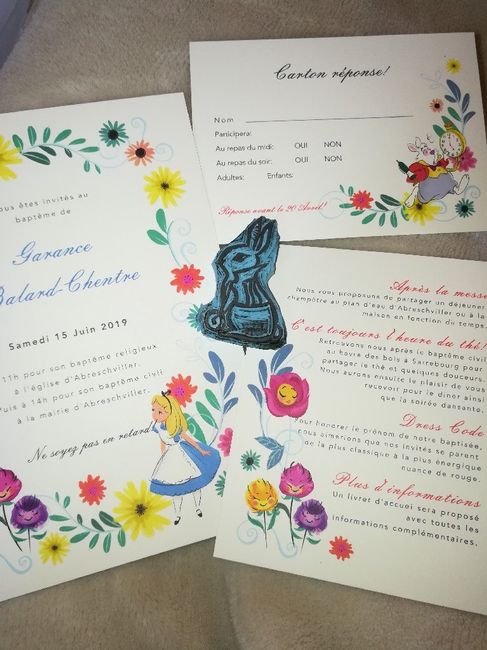 ous êtes invités au
baptême de
Garance
Balard-Chentre
Samedi 15 Juin 2019
11h pour son baptême religieux
à l'église d'Abreschviller.
uis à 14h pour son baptême civil
à la mairie d'Abreschviller.
Ne soyez pas en retard
Carton réponse!
Nom
Participera:
Au repas du midi: OUI NON
Au repas du soir: OUI NON
Adultes: Enfants:
Réponse avant le 20 Avril!
Après la messe
Nous vous proposons de partager un déjeuner
champêtre au plan d'eau d'Abreschviller ou à la
maison en fonction du temps.
C'est toujours l'heure du thé!
Retrouvons nous après le baptême civil
au havre des bois à Sarrebourg pour
partager le thé et quelques douceurs.
Nous aurons ensuite le plaisir de vous
recevoir pour le diner ainsi
que la soirée dansante.
Dress Code
Pour honorer le prénom de notre baptisée,
nous aimerions que nos invités se parent
de la plus classique à la plus énergique
nuance de rouge.
Plus d'informations
Un livret d'accueil sera proposé
avec toutes les
informations complémentaires.